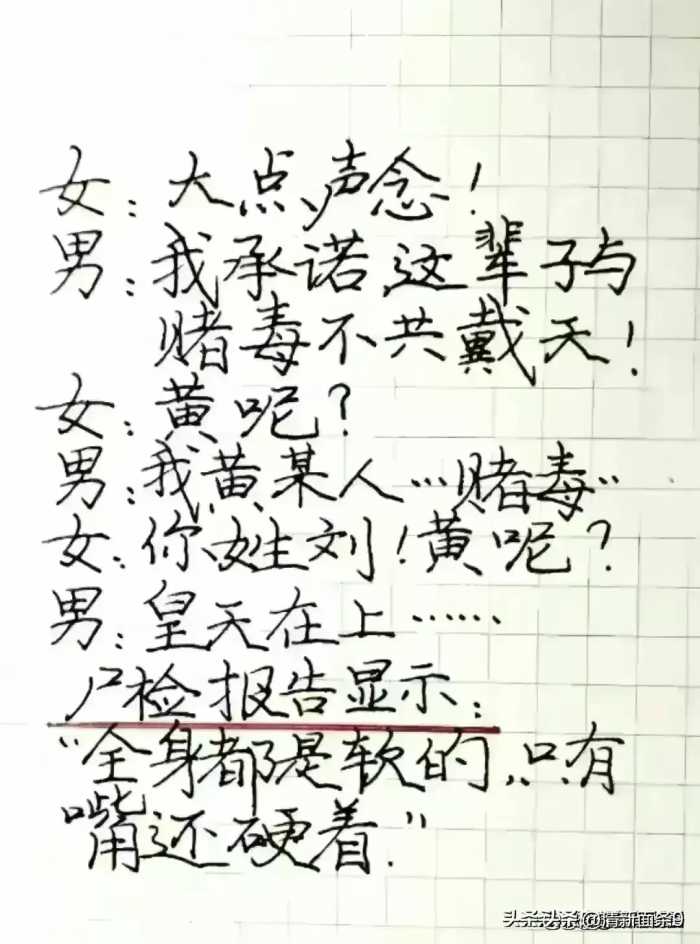 女：大点声念！
男：我承诺这辈子与
赌毒不共戴天！
女：黄呢？
男：我黄某人…赌毒…
女：你姓刘！黄呢？
男：皇天在上……
尸检报告显示：
“全身都是软的，只有
嘴还硬着.”
头条 @清新面条